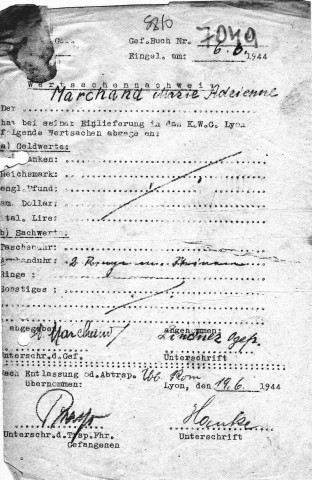 Gef.Buch Nr. 7049
Eingel. am: 6.6. 1944
Wertsachennachwei
Marchand Marie Adrienne
Der
hat bei seiner Einlieferung in das K.W.G. Lyon
folgende Wertsachen abgegeben:
a) Geldwerte:
Franken:
Reichsmark:
engl.Pfund:
am. Dollar:
ital. Lire:
b) Sachwerte:
Taschenuhr:
Armbanduhr:
Ringe :
Sonstiges :
abgegeben: Marchand
angenommen: Ogef.
Unterschr.d.Gef.
Unterschrift
Nach Entlassung od.Abtrsp.
übernommen:
Lyon, den 19.6. 1944
Unterschr.d.Tsp.Fhr.
Gefangenen
Unterschrift